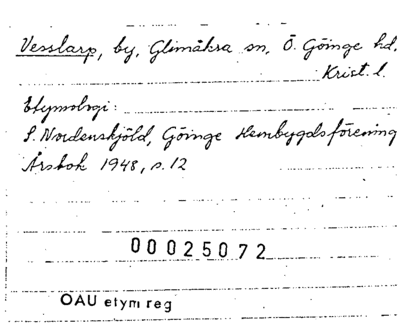 Vesslarp, by, Glimåkra sn, Ö. Göinge hd,
Krist. l.
Etymologi:
S. Nordenskjöld, Göinge Hembygdsförening
Årsbok 1948, s. 12
00025072
OAU etym reg